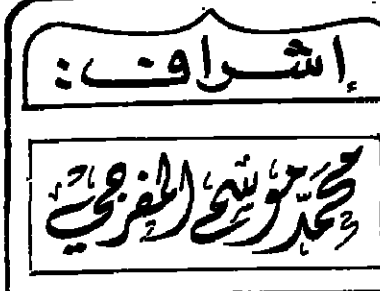 إشراف:
محمد موسى المفرجي